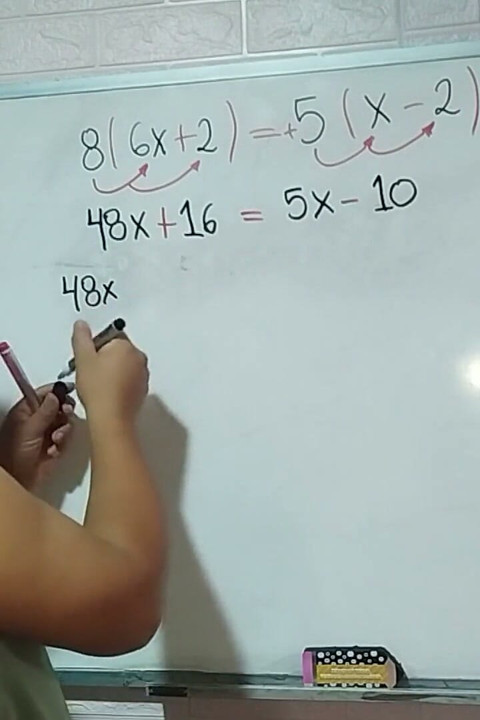 8(6x+2)=+5(x-2)
48x+16 = 5x-10
48x